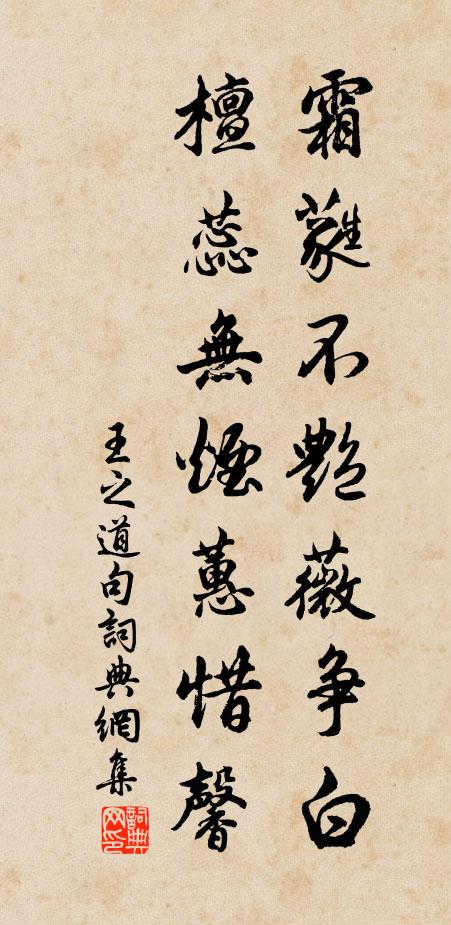 霜蕤不艷薇争白
檀蕊無煙蕙惜馨
王之道句詞典網集
詞典网印